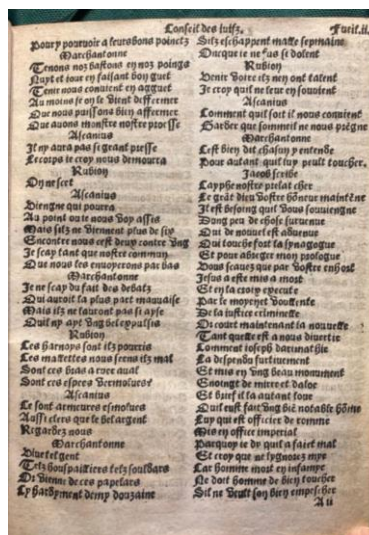 Conseil des iuifz. Fueil.ii.
Pour y pouruoir a leurs bons poinctz
Marchantonne
Tenons noz bastons en noz poings
Nuyt et iour en faisant bon guet
Tenir nous conuient en agguet
Au moins se on le vient deffermer
Que nous puissons bien affermer
Que auons monstre nostre proesse
Ascanius
Il ny aura pas si grant presse
Le corps ie croy nous demourra
Rubion
On ne scet
Ascanius
Viengne qui pourra
Au point ou ie nous voy assis
Mais silz ne viennent plus de six
Encontre nous cest deux contre vng
Je scay tant que nostre commun
Que nous les enuoyerons par bas
Marchantonne
Je ne scay du fait des debatz
Qui auroit la plus part mauuaise
Mais ilz ne lauront pas si ayse
Quil ny ayt vng bel expulsis
Rubion
Les harnops sont ilz pourris
Les mallettes nous seens ilz mal
Sont ces bras a roee aual
Sont ces espees vermolues?
Ascanius
Ce sont armeures esmolues
Aussi cleres que bel argent
Regardez nous
Marchantonne
Viue tel gent
Telz houspailliers telz souldars
Or vienne de ces papelars
Cy hardyment demy douzaine
Silz eschappent malle sepmaine
Dacque ie ne sus se dolent
Rubion
Venir voire ilz nen ont talent
Je croy quil ne leur en souuient
Ascanius
Comment quil soit il nous conuient
Garder que sommeil ne nous prengne
Marchantonne
Cest bien dit chascun y entende
Pour autant quil luy peult toucher.
Jacob scribe
Cayphe nostre prelat cher
Le grãt dieu vostre hõneur maintẽne
Il est besoing quil vous souuiengne
Vong peu de chose suruenue
Qui de nouuel est aduenue
Qui touche fort la synagogue
Et pour abreger mon prologue
Vous scauez que par vostre enhort
Jesus a este mis a mort
Et en la croix execute
Par le moyen et voulente
De la iustice criminelle
Or court maintenant la nouuelle
Tant quelle est a nous diuertie
Comment ioseph darimathie
La despendu furtiuement
Et mis en vng beau monument
Enoingt de mirre et daloe
Et brief il la autant loue
Quil eust fait vng biẽ notable hõme
Luy qui est officier de romme
Mis en office imperial
Parquoy ie dy quil a fait mal
Et croy que ne lygnorez mye
Car homme mort en infamye
Ne doit homme de bien toucher
Sil ne veult son bien empescher
A ii